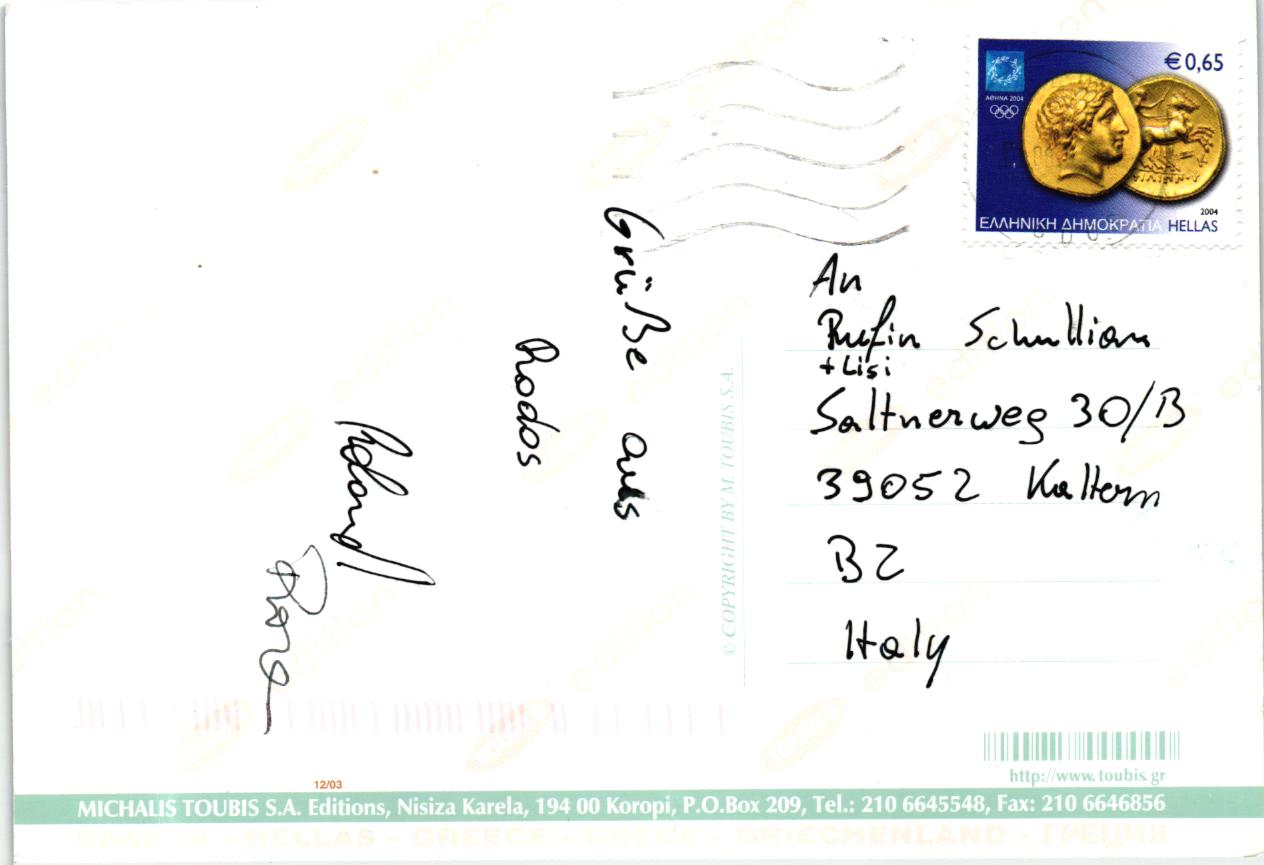 €0,65
ΑΘΗΝΑ 2004
2004
ΕΛΛΗΝΙΚΗ ΔΗΜΟΚΡΑΤΙΑ HELLAS
Grüße aus
Rodos
An
Rufin Schullian
+ Lisi
Saltnerweg 30/B
39052 Kaltern
BZ
Italy
© COPYRIGHT BY M. TOUBIS S.A.
http://www.toubis.gr
12/03
MICHALIS TOUBIS S.A. Editions, Nisiza Karela, 194 00 Koropi, P.O.Box 209, Tel.: 210 6645548, Fax: 210 6646856
HELLAS - GREECE - GRECE - GRIECHENLAND - ГРЕЦИЯ